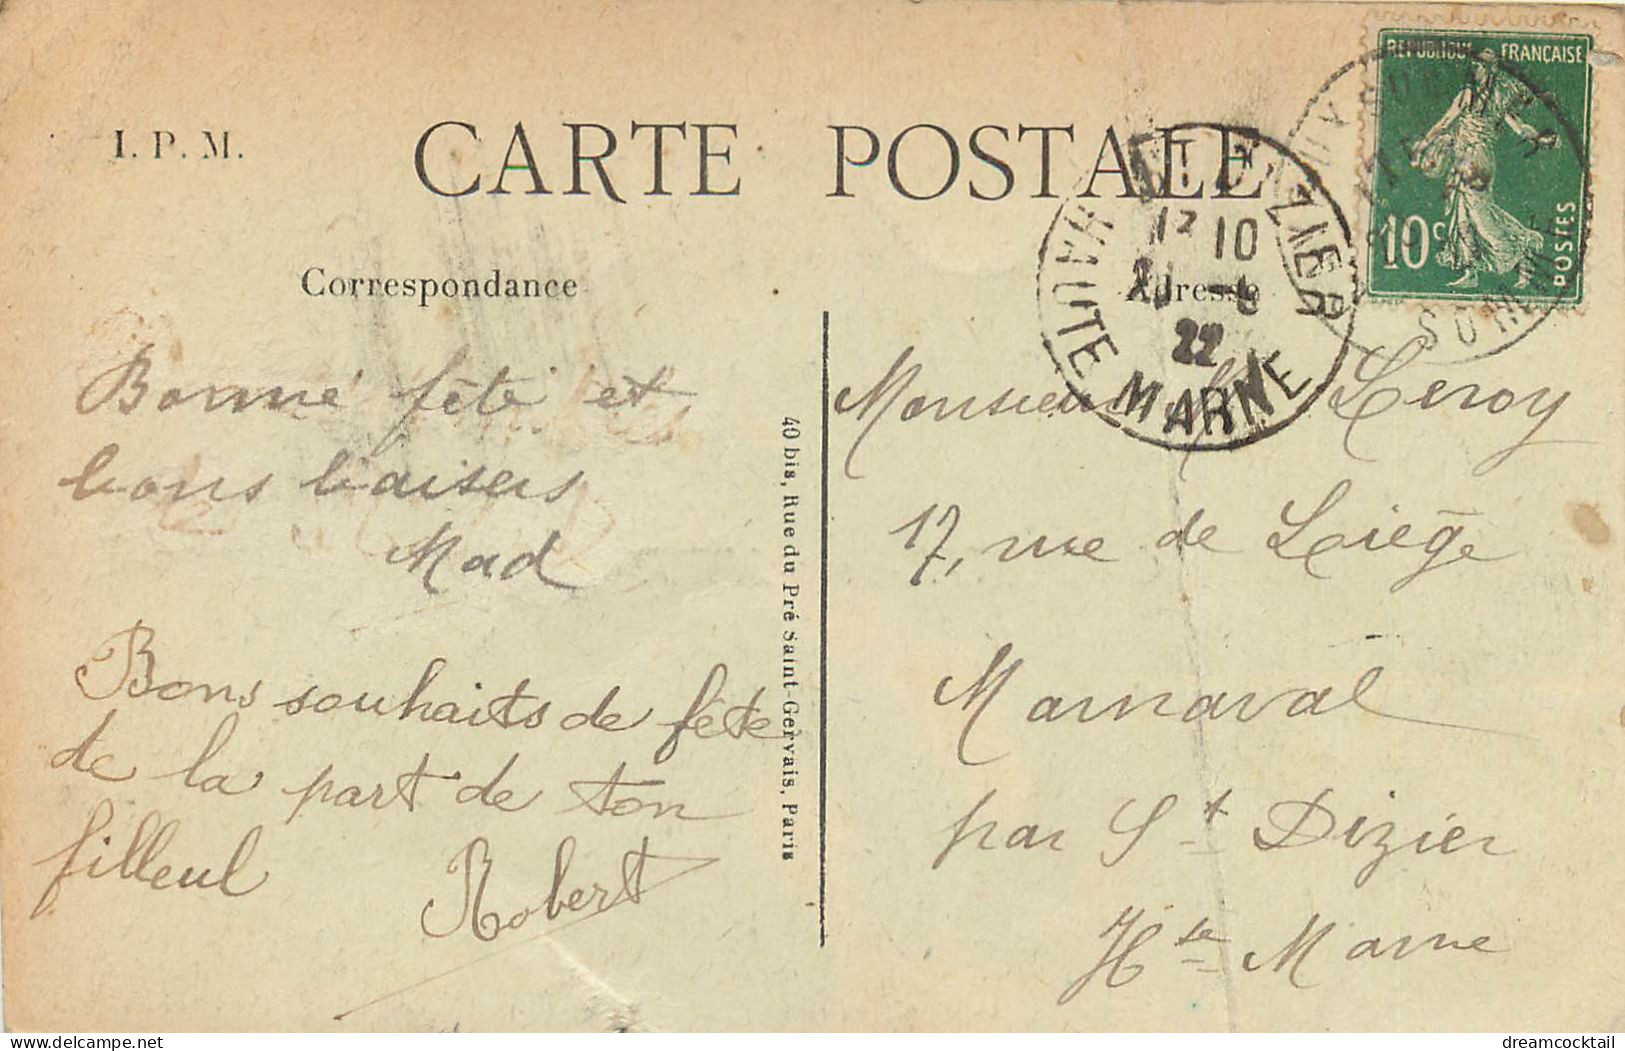 I. P. M.
CARTE POSTALE
RÉPUBLIQUE FRANÇAISE
10c
POSTES
SOMME
ST DIZIER
12 10
22
HAUTE MARNE
Correspondance
Adresse
Bonne fête et
bons baisers
Mad
Bons souhaits de fête
de la part de ton
filleul Robert
40 bis, Rue du Pré Saint-Gervais, Paris
Monsieur Leroy
17, rue de Liège
Marnaval
par St Dizier
Hte Marne
dreamcocktail